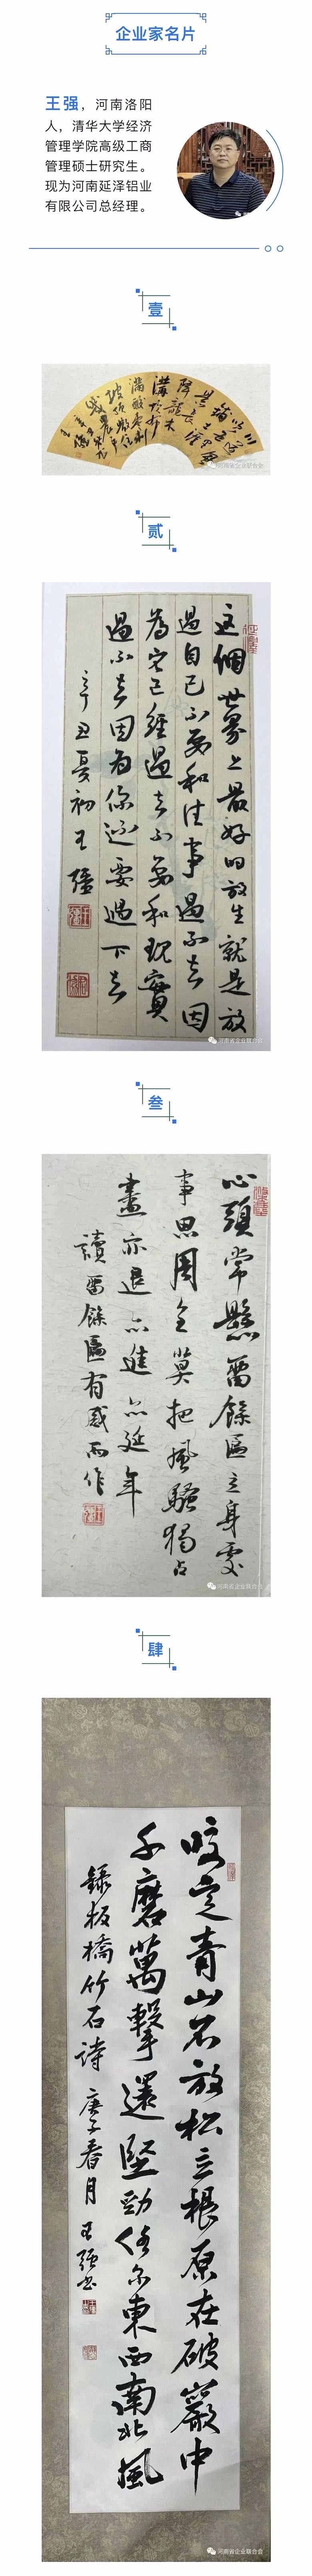 企业家名片
王强，河南洛阳
人，清华大学经济
管理学院高级工商
管理硕士研究生。
现为河南延泽铝业
有限公司总经理。
壹
河南省企业联合会
贰
这個世界上最好的放生就是放
過自己不要和往事過不去因
為它已經過去不要和現實
過不去因为你还要過下去
辛丑夏初王強
河南省企业联合会
叁
心頭常懸留餘匾立身處
事思周全莫把風騷獨占
盡亦退亦進亦延年
讀留餘匾有感而作
河南省企业联合会
肆
咬定青山不放松立根原在破巖中
千磨萬擊還堅勁任尔東西南北風
錄板橋竹石诗 庚子春月 王强书
河南省企业联合会